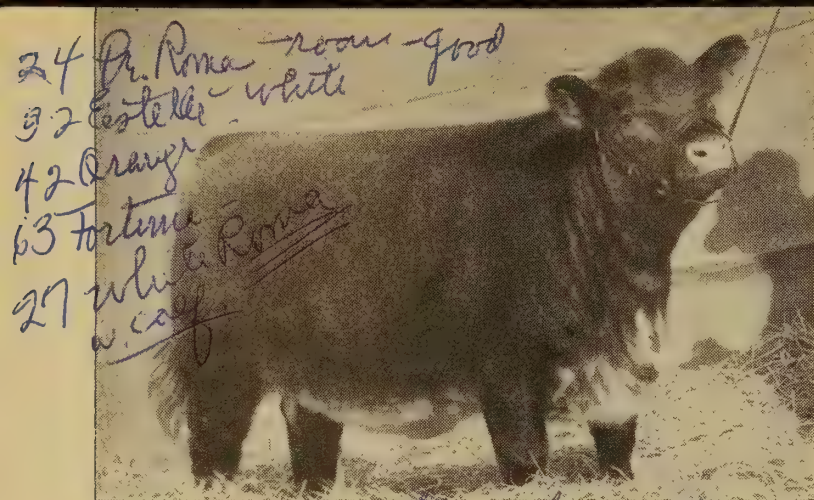 24 Pr. Roma - roan - good
32 Estelle - white
42 Orange
63 Fortune -
27 White Roma
w. calf.